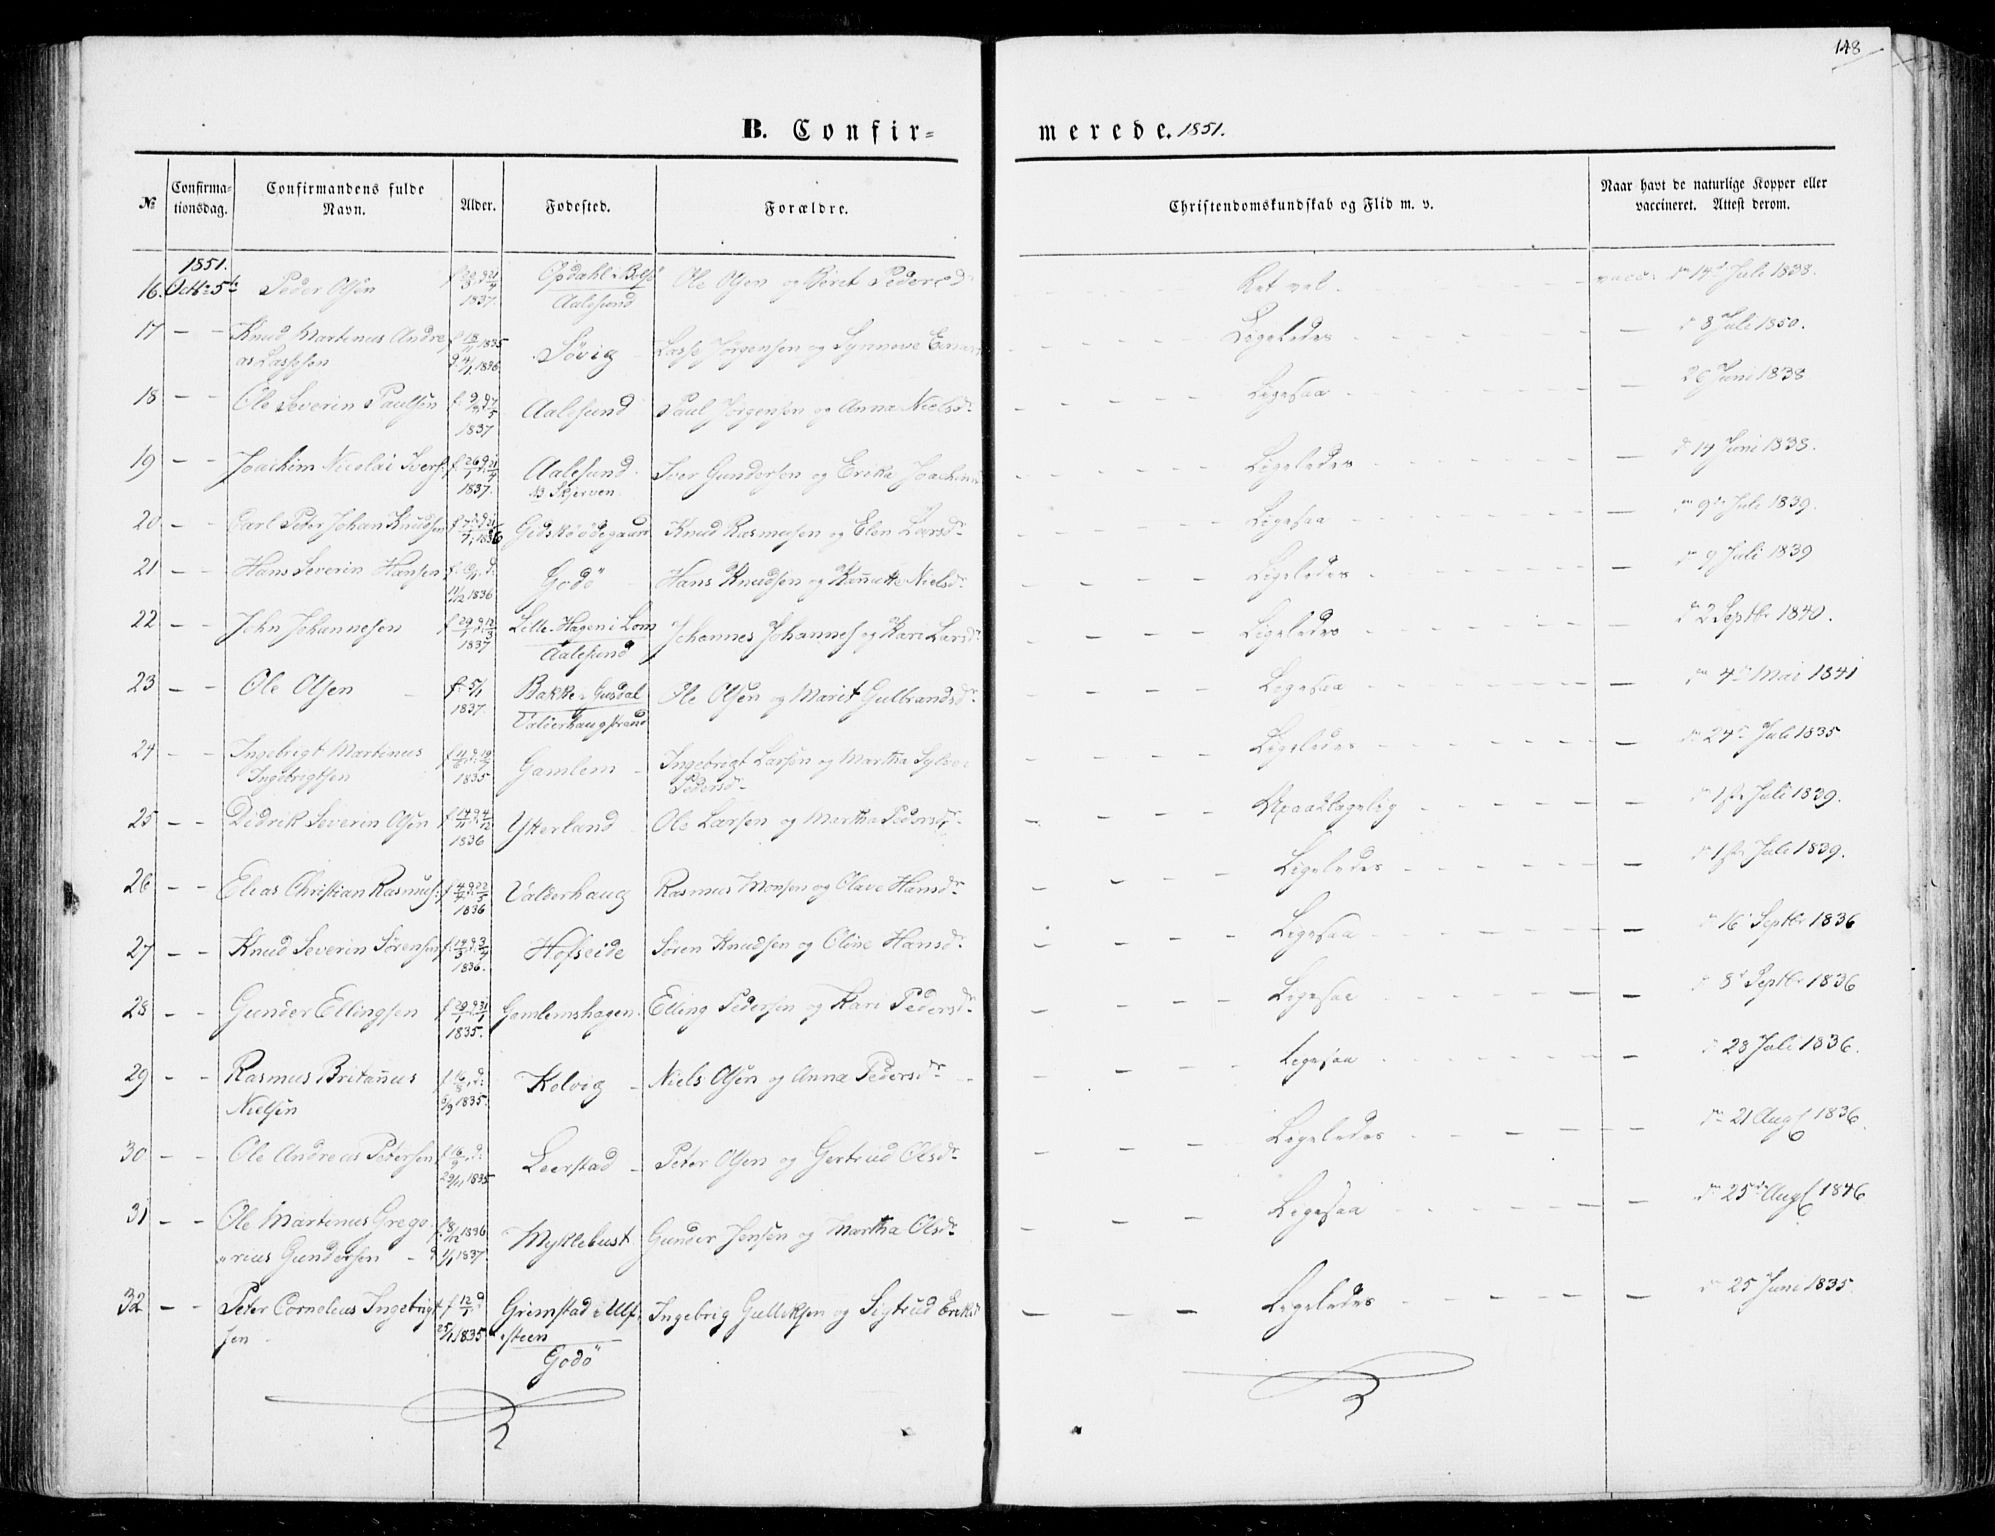 148
B. Confir=
merede. 1851.
№
Confirma-
tionsdag.
Confirmandens fulde
Navn.
Alder.
Fødested.
Forældre.
Christendomskundskab og Flid m. v.
Naar havt de naturlige Kopper eller
vaccineret. Attest derom.
1851.
16. Octbr 5te Peder Olsen 1837. Opdahl i Aalesund Ole Olsen og Berit Pedersdr Ret vel. vacc: 14de Juli 1838.
17 – – Knud Martinus Andre
as Lassesen 1835 1836 Søvig Lasse Jørgensen og Synneve Ligeledes 3 Juli 1850.
18 – – Ole Severin Paulsen 1837 Aalesund Paul Jørgensen og Anna Nielsdr Ligesaa 26 Juni 1838
19 – – Joachim Nicolai Ivers 1837. Aalesund. Iver Gundersen og Erika Joachims Ligeledes 14 Juni 1838.
20 – – Carl Peter Johan Knudsen 1836 Gidskøødegaard Knud Rasmussen og Elen Larsdr Ligesaa 9de Juli 1839.
21 – – Hans Severin Hansen 11/12 1836 Godø Hans Knudsen og Nielsdr Ligeledes 9 Juli 1839
22 – – John Johannesen 1837 Lille Hagen i Lom Aalesund Johannes Johannes og Kari Larsdr Ligeledes 2 Septbr 1840.
23 – – Ole Olsen f. 5/1 1837. Bakke i Valderhaugstrand Ole Olsen og Marit Gulbrandsdr Ligesaa 4de Mai 1841
24 – – Ingebrigt Martinus
Ingebrigtsen 1835 Gamlem Ingebrigt Larsen og Martha
Pedersdr Ligeledes 24de Juli 1835
25 – – Didrik Severin Olsen 1836 Ytterland Ole Larsen og Martha Pedersdr Upaaklagelig 1ste Juli 1839.
26 – – Elias Christian Rasmus: 1836 Valderhaug Rasmus Monsen og Olave Hansdr Ligeledes 1ste Juli 1839.
27 – – Knud Severin Sørensen 1836. Hofseide Søren Knudsen og Oline Hansdr Ligesaa 16 Septbr 1836
28 – – Gunder Ellingsen 1835. Gamlemshagen. Elling Pedersen og Kari Pedersdr Ligesaa 8de Septbr 1836
29 – – Rasmus Britanus
Nielsen 1835. Kolvig Niels Olsen og Anna Pedersdr Ligesaa 28 Juli 1836.
30 – – Ole Andreas Petersen 1835 Leerstad Peter Olsen og Gertrud Olsdr Ligeledes 21 Augt 1836.
31 – – Ole Martinus Grego
rius Gundersen 8/12 1836 1/1 1837. Myklebust Gunder Jensen og Martha Olsdr Ligesaa 25de Augt 1846
32 – – Peter Cornelius Ingebrigt
sen 1835 Grimstad i Ulf
steen
Godø Ingebrig Gulliksen og Sigtrud Eriksd Ligeledes 25 Juni 1835.